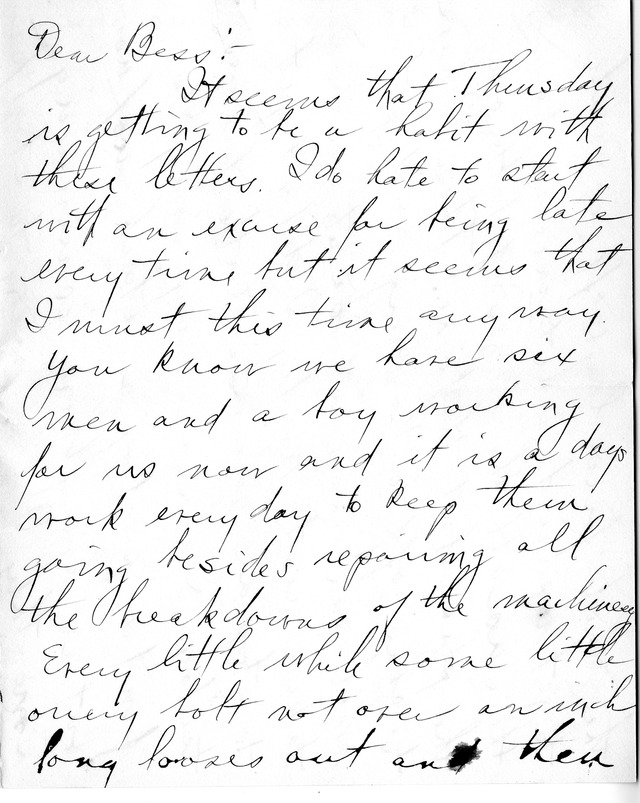 Dear Bess:-
It seems that Thursday
is getting to be a habit with
these letters. I do hate to start
with an excuse for being late
every time but it seems that
I must this time anyway.
You know we have six
men and a boy working
for us now and it is a days
work everyday to keep them
going besides repairing all
the breakdowns of the machinery
Every little while some little
onery bolt not over an inch
long looses out and then